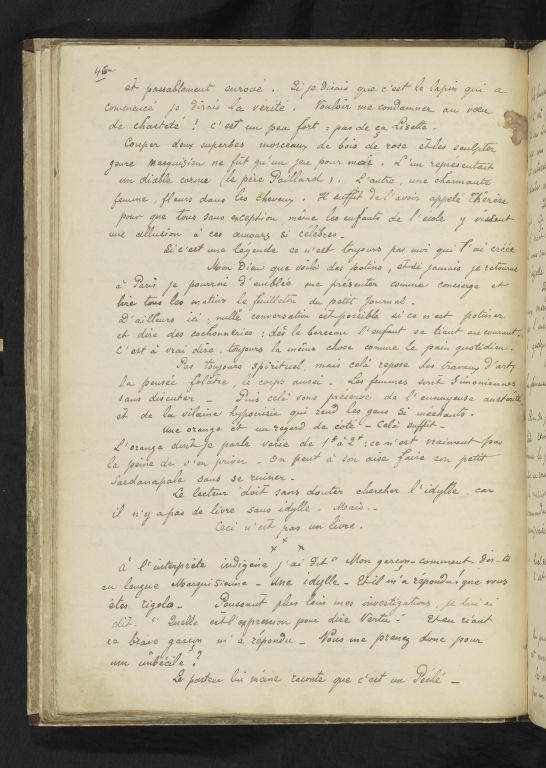 46
et passablement enroué. Si je disais que c'est le lapin qui a
commencé je dirais la vérité. Vouloir me condamner au vœu
de chasteté ! c'est un peu fort : pas de ça Lisette.
Couper deux superbes morceaux de bois de rose et les sculpter
genre marquisien ne fût qu'un jeu pour moi. L'un représentait
un diable cornu (le père Paillard). L'autre, une charmante
femme, fleurs dans les cheveux. Il suffit de l'avoir appelé Thérèse
pour que tous sans exception même les enfants de l'école y vissent
une allusion à ces amours si célèbres.
Si c'est une légende ce n'est toujours pas moi qui l'ai créée
Mon Dieu que voilà des potins, et si jamais je retourne
à Paris je pourrai d'emblée me présenter comme concierge et
lire tous les matins le feuilleton du petit Journal.
D'ailleurs ici, nulle conversation est possible si ce n'est potiner
et dire des cochonneries : dès le berceau l'enfant se tient au courant.
C'est à vrai dire, toujours la même chose comme le pain quotidien.
Pas toujours spirituel, mais celà repose des travaux d'art,
la pensée folâtre, le corps aussi. Les femmes sont Simoniennes
sans discuter — Puis celà vous préserve de l'ennuyeuse austérité
et de la vilaine hypocrisie qui rend les gens si méchants.
Une orange et un regard de coté — Celà suffit —
L'orange dont je parle varie de 1f à 2f ; ce n'est vraiment pas
la peine de s'en priver. On peut à son aise faire son petit
Sardanapale sans se ruiner —
Le lecteur doit sans douter chercher l'idylle, car
il n'y a pas de livre sans idylle. Mais..
Ceci n'est pas un livre.
x x x
À l'interprète indigène j'ai dit " Mon garçon — comment dis-tu
en langue Marquisienne — Une idylle — Et il m'a répondu, que vous
êtes rigolo — Poussant plus loin mes investigations, je lui ai
dit — " Quelle est l'expression pour dire Vertu — Et en riant
ce brave garçon m'a répondu — Vous me prenez donc pour
un imbécile ?
Le pasteur lui même raconte que c'est un Péché —